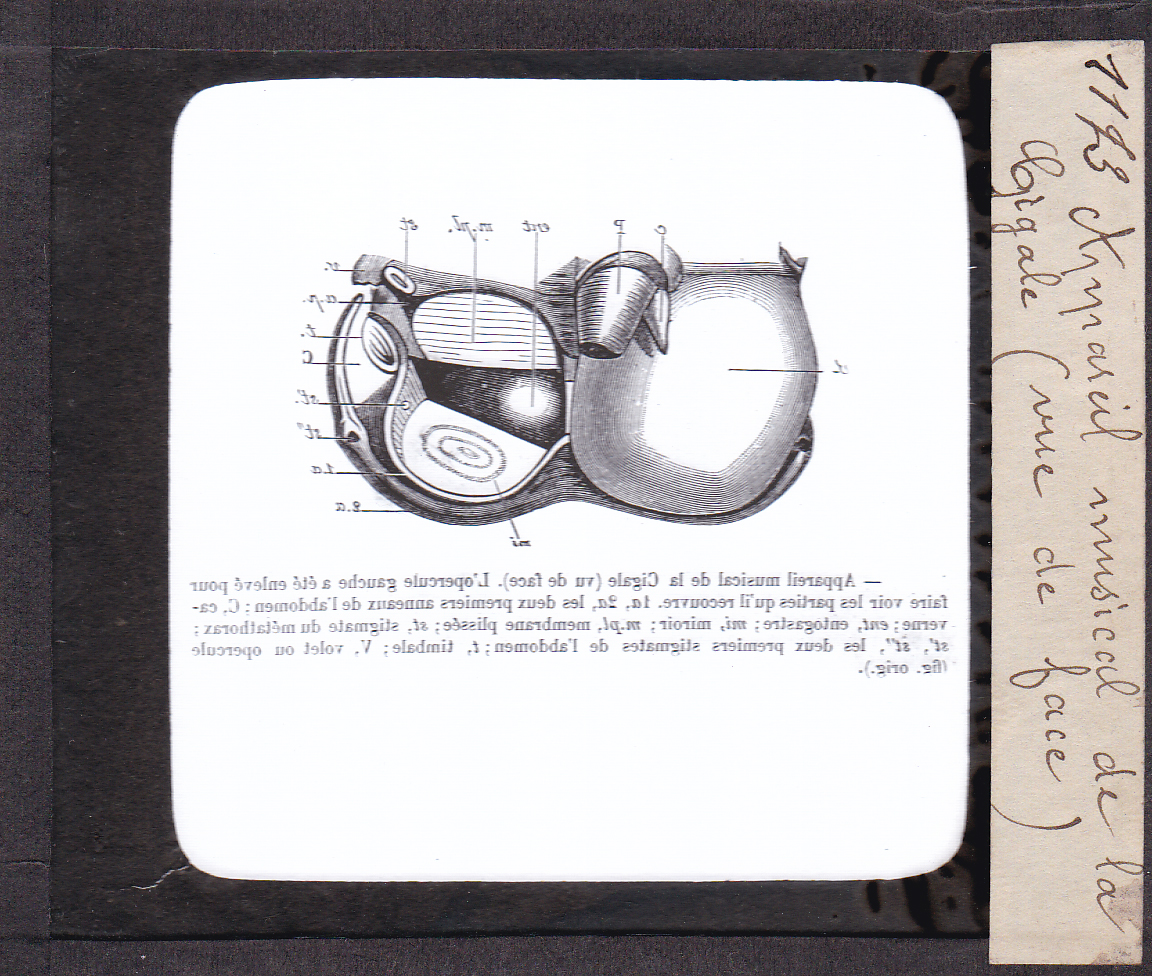 st m.pl. ent P c
v.
a.p.
t.
C
st'.
st"
1.a
2.a.
mi
— Appareil musical de la Cigale (vu de face). L'opercule gauche a été enlevé pour
faire voir les parties qu'il recouvre. 1a, 2a, les deux premiers anneaux de l'abdomen; C, ca-
verne; ent, entogastre; mi, miroir; m.pl, membrane plissée; st, stigmate du métathorax;
st', st", les deux premiers stigmates de l'abdomen; t, timbale; V, volet ou opercule
(fig. orig.).
Appareil musical de la
Cigale (vue de face)